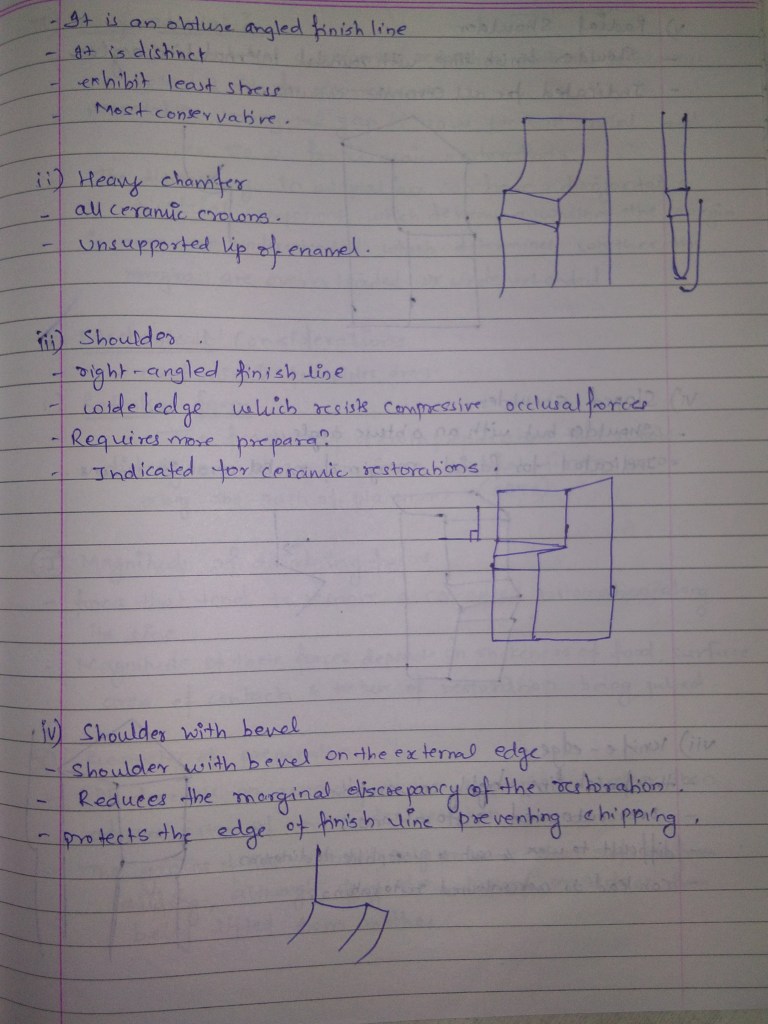 - It is an obtuse angled finish line
- It is distinct
- exhibit least stress
- Most conservative.
ii) Heavy chamfer
- all ceramic crowns.
- unsupported lip of enamel.
iii) Shoulder.
- right-angled finish line
- wide ledge which resists compressive occlusal forces
- Requires more preparan
- Indicated for ceramic restorations.
iv) Shoulder with bevel
- shoulder with bevel on the external edge
- Reduces the marginal discrepancy of the restoration.
- protects the edge of finish line preventing chipping.